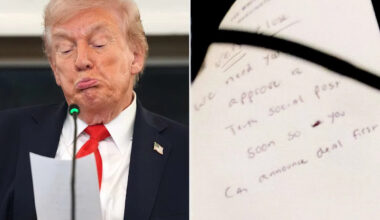 We need you
approve a
Truth Social post
soon so you
can announce deal first